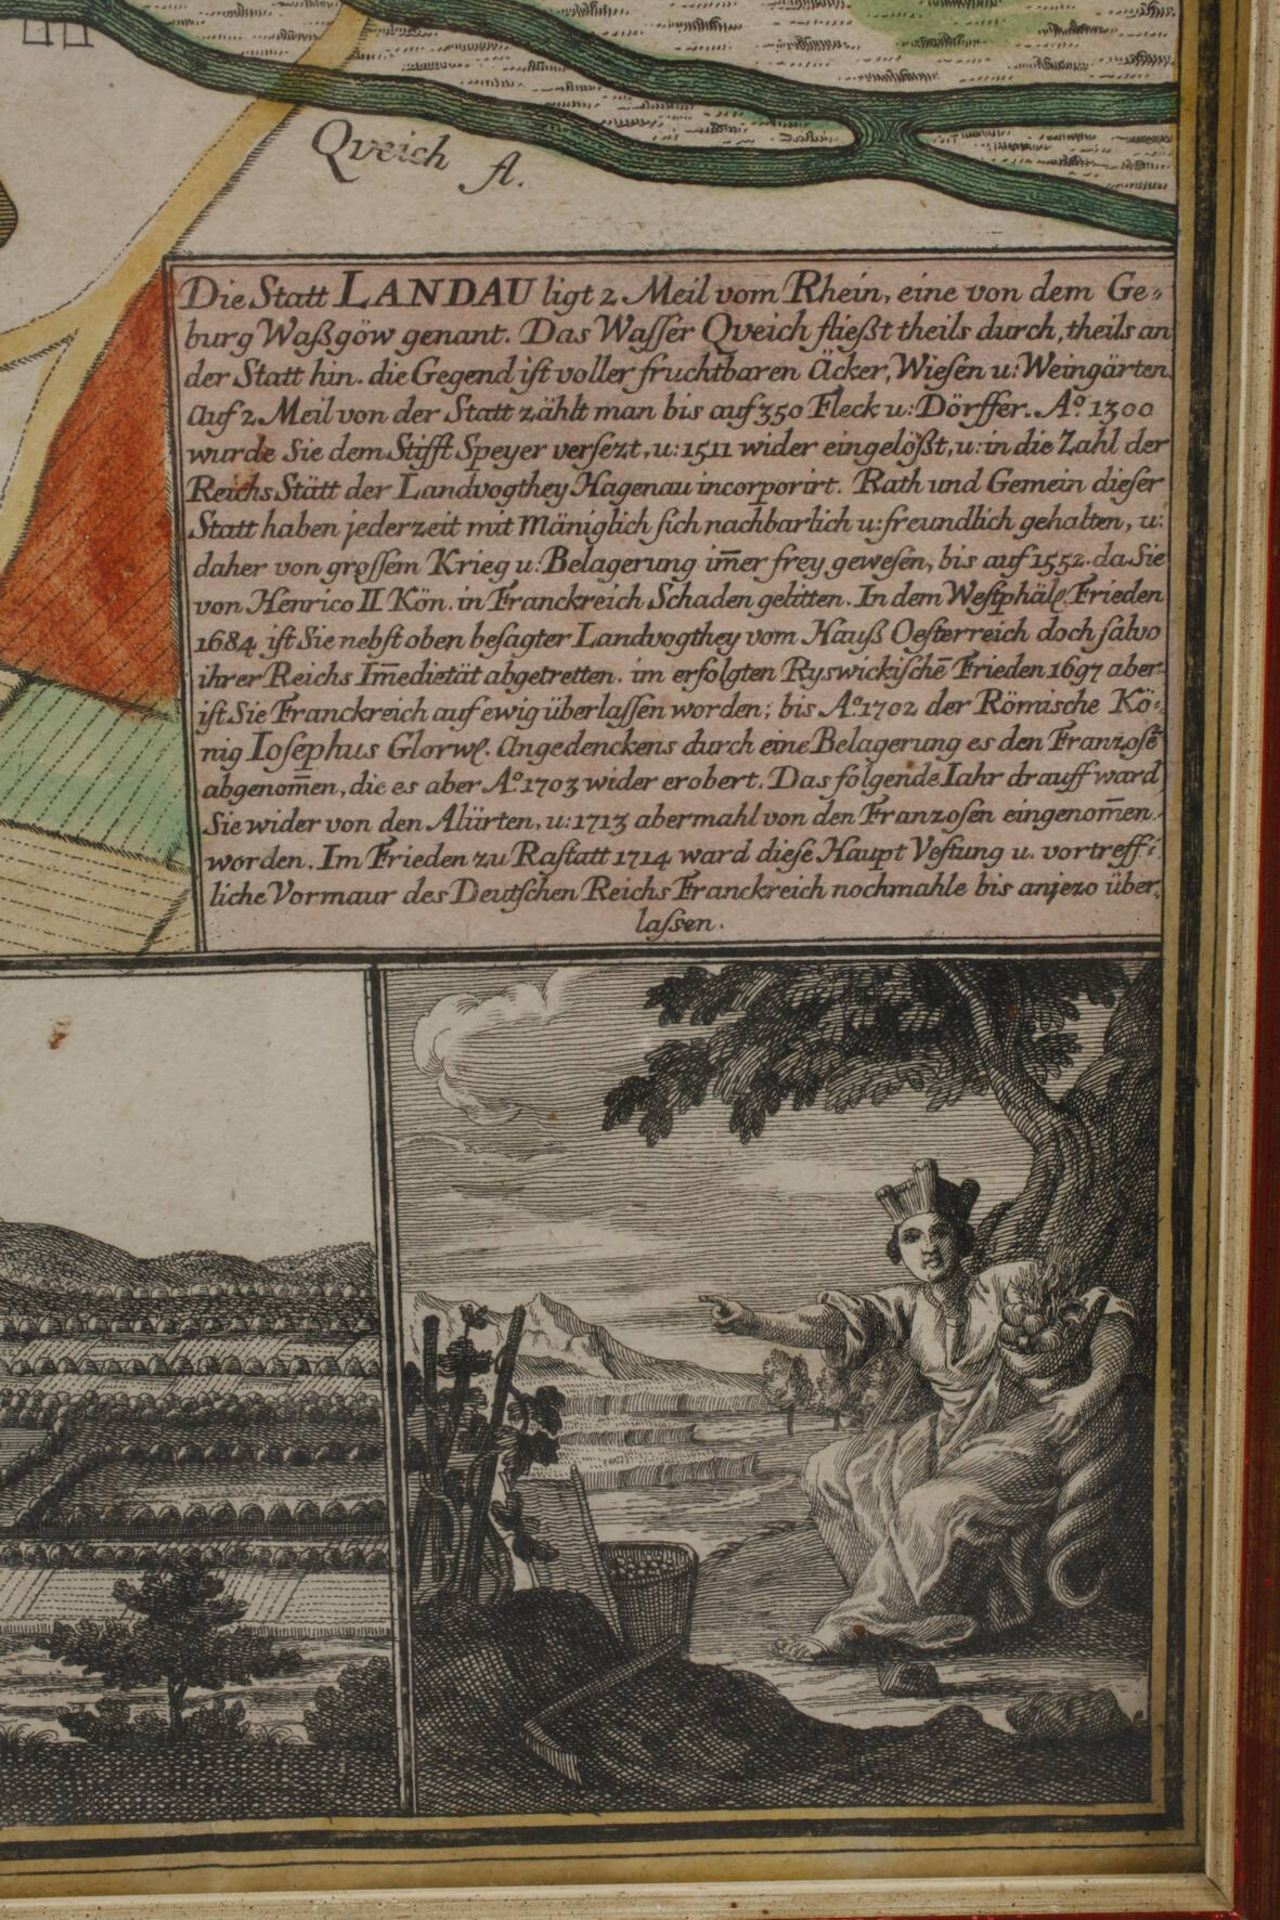 Qveich fl.
Die Statt LANDAU ligt 2 Meil vom Rhein, eine von dem Ge-
burg Waßgöw genant. Das Wasser Qveich fließt theils durch, theils an
der Statt hin. die Gegend ist voller fruchtbaren Äcker, Wiesen u: Weingärten
auf 2 Meil von der Statt zählt man bis auf 350 Fleck u: Dörffer. Aº 1300
wurde Sie dem Stifft Speyer versezt, u: 1511 wider eingelößt, u: in die Zahl der
Reichs Stätt der Landvogthey Hagenau incorporirt. Rath und Gemein dieser
Statt haben jederzeit mit Mäniglich sich nachbarlich u: freundlich gehalten, u:
daher von grossem Krieg u: Belagerung im̄er frey gewesen, bis auf 1552. da Sie
von Henrico II Kön. in Franckreich Schaden gelitten. In dem Westphäl. Frieden
1684 ist Sie nebst oben besagter Landvogthey vom Hauß Oesterreich doch salvo
ihrer Reichs Im̄edietät abgetretten. im erfolgten Ryswickischē Frieden 1697 aber
ist Sie Franckreich auf ewig überlassen worden; bis Aº 1702 der Römische Kö-
nig Iosephus Glorw. Angedenckens durch eine Belagerung es den Franzosē
abgenom̄en, die es aber Aº 1703 wider erobert. Das folgende Iahr drauff ward
Sie wider von den Alürten, u: 1713 abermahl von den Franzosen eingenom̄en
worden. Im Frieden zu Rastatt 1714 ward diese Haupt Vestung u. vortreff-
liche Vormaur des Deutschen Reichs Franckreich nochmahle bis anjezo über-
lassen.